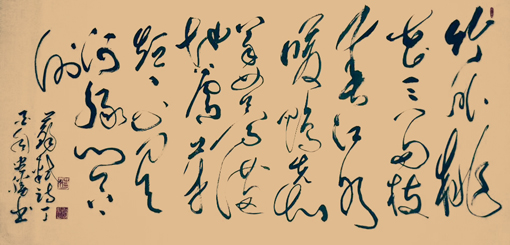 竹外桃
花三两枝
春江水
暖鸭先知
蒌蒿满
地芦芽
短正是
河豚欲上
时
苏轼诗丁
酉年书